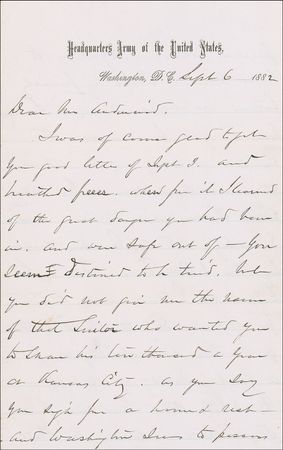 Headquarters Army of the United States,
Washington, D.C. Sept 6 1882
Dear Mrs Audenreid.
I was of course glad to get
your good letter of Sept 3. and
breathed freer. when from it I learned
of the great danger you had been
in. and were safe out of - You
seem destined to be tried. but
you did not give me the name
of that Suitor who wanted you
to share his ten thousand a year
at Kansas City. as you say
you sigh for a home & rest -
and Washington seems to possess